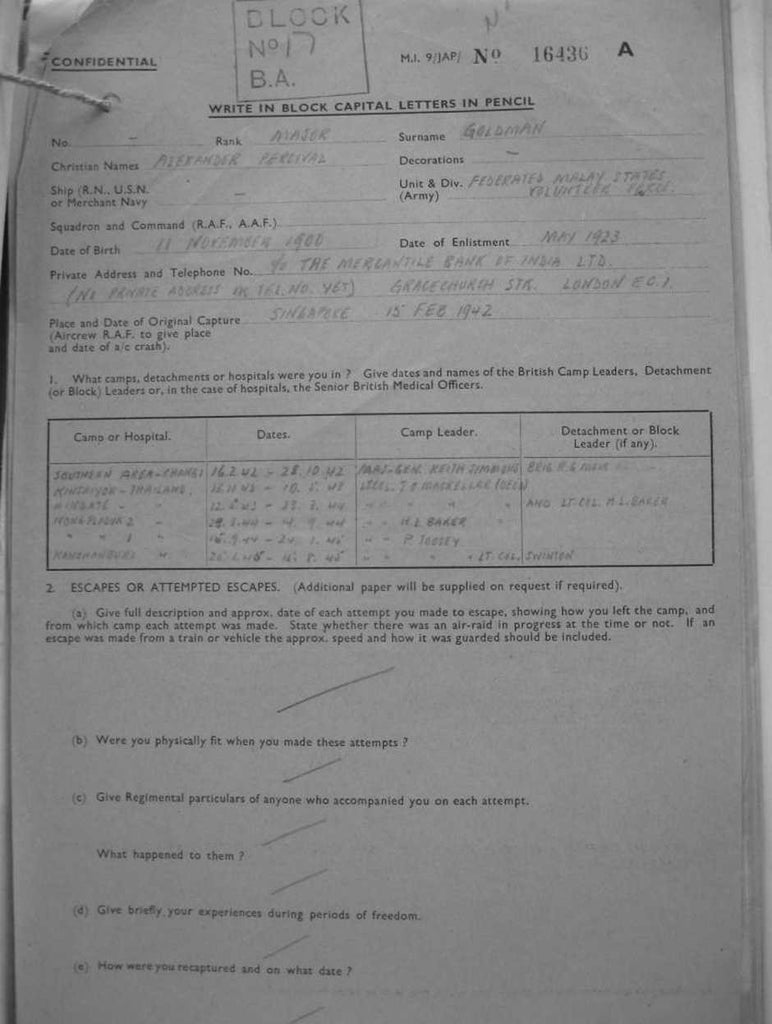 BLOCK
No 17
B.A.
CONFIDENTIAL
M.I. 9/JAP/ No 16436 A
WRITE IN BLOCK CAPITAL LETTERS IN PENCIL
No. – Rank MAJOR Surname GOLDMAN
Christian Names ALEXANDER PERCIVAL Decorations –
Ship (R.N., U.S.N. – Unit & Div. FEDERATED MALAY STATES
or Merchant Navy (Army) VOLUNTEER FORCE.
Squadron and Command (R.A.F., A.A.F.)
Date of Birth 11 NOVEMBER 1900 Date of Enlistment MAY 1923
Private Address and Telephone No. c/o THE MERCANTILE BANK OF INDIA LTD.
(NO PRIVATE ADDRESS OR TEL. NO. YET) GRACECHURCH STR. LONDON E.C.1.
Place and Date of Original Capture SINGAPORE 15 FEB 1942
(Aircrew R.A.F. to give place
and date of a/c crash).
1. What camps, detachments or hospitals were you in ? Give dates and names of the British Camp Leaders, Detachment
(or Block) Leaders or, in the case of hospitals, the Senior British Medical Officers.
Camp or Hospital. Dates. Camp Leader. Detachment or Block
Leader (if any).
SOUTHERN AREA – CHANGI 16.2.42 – 28.10.42 MAJ-GEN. KEITH SIMMONS BRIG R.G.
– THAILAND, LT COL.
AND LT. COL. H.L. BAKER
– 4. 9. 44 " " H.L. BAKER
" " 1 " " " P. TOOSEY
" " LT COL. SWINTON
2. ESCAPES OR ATTEMPTED ESCAPES. (Additional paper will be supplied on request if required).
(a) Give full description and approx. date of each attempt you made to escape, showing how you left the camp, and
from which camp each attempt was made. State whether there was an air-raid in progress at the time or not. If an
escape was made from a train or vehicle the approx. speed and how it was guarded should be included.
(b) Were you physically fit when you made these attempts ?
(c) Give Regimental particulars of anyone who accompanied you on each attempt.
What happened to them ?
(d) Give briefly your experiences during periods of freedom.
(e) How were you recaptured and on what date ?